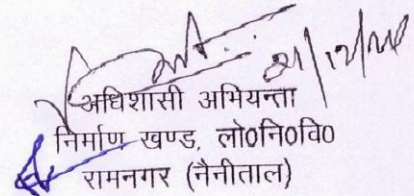 अधिशासी अभियन्ता
निर्माण खण्ड, लो0नि0वि0
रामनगर (नैनीताल)